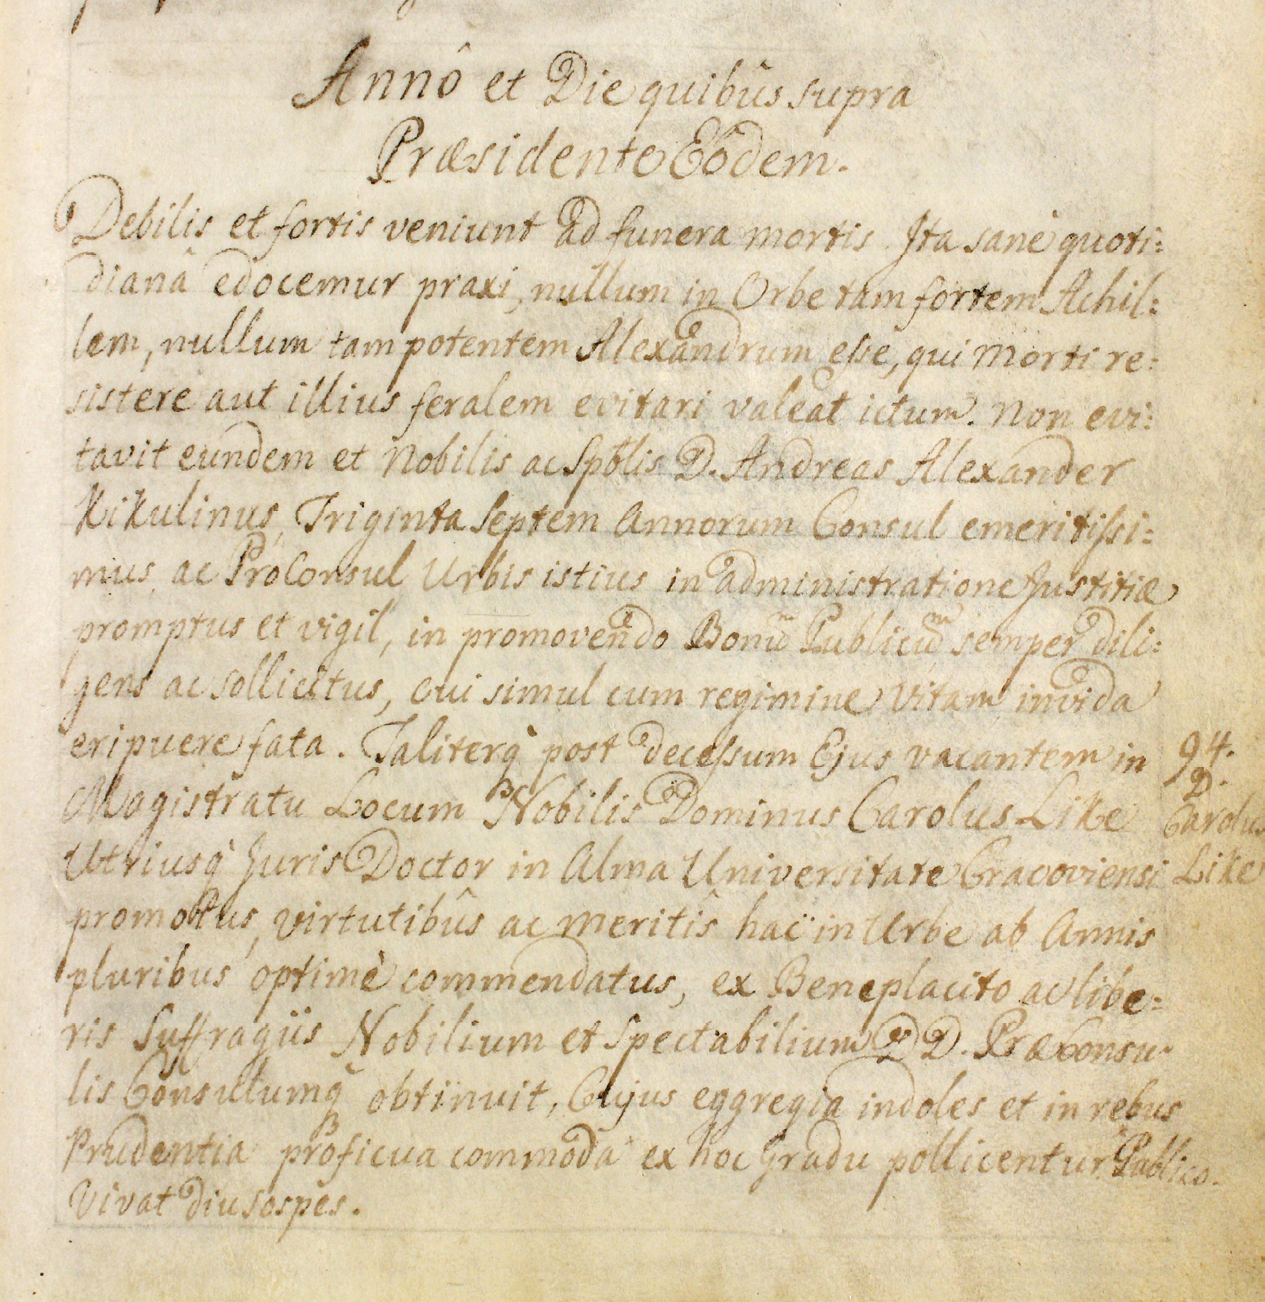 Annô et Die quibûs supra
Præsidente Eôdem.
Debilis et fortis veniunt ad funera mortis. Ita sanè quoti:
dianâ edocemur praxi, nullum in Orbe tam fortem Achil:
lem, nullum tam potentem Alexandrum esse, qui Morti re:
sistere aut illius feralem evitari valeat ictum. Non evi:
tavit eundem et Nobilis ac Sptlis D. Andreas Alexander
Kikulinus, Triginta Septem Annorum Consul emeritissi:
mus, ac ProConsul Urbis istius in administratione Justitiæ
promptus et vigil, in promovendo Bonũ Publicũ semper dili:
gens ac sollicitus, cui simul cum regimine Vitam invida
eripuere fata. Taliterq̀ post decessum Ejus vacantem in
Magistratu Locum Nobilis Dominus Carolus Like
Utriusq̀ Juris Doctor in Alma Universitate Cracoviensi
promotus, virtutibûs ac meritîs hac in Urbe ab Annis
pluribus optimè commendatus, ex Beneplacito ac libe:
ris Suffragiis Nobilium et Spectabilium D D. Præconsu:
lis Consulumq̀ obtinuit, Cujus eggregia indoles et in rebus
Prudentia proficua commoda ex hoc Gradu pollicentur Publico.
Vivat diu sospes.
94.
D.
Carolus
Like